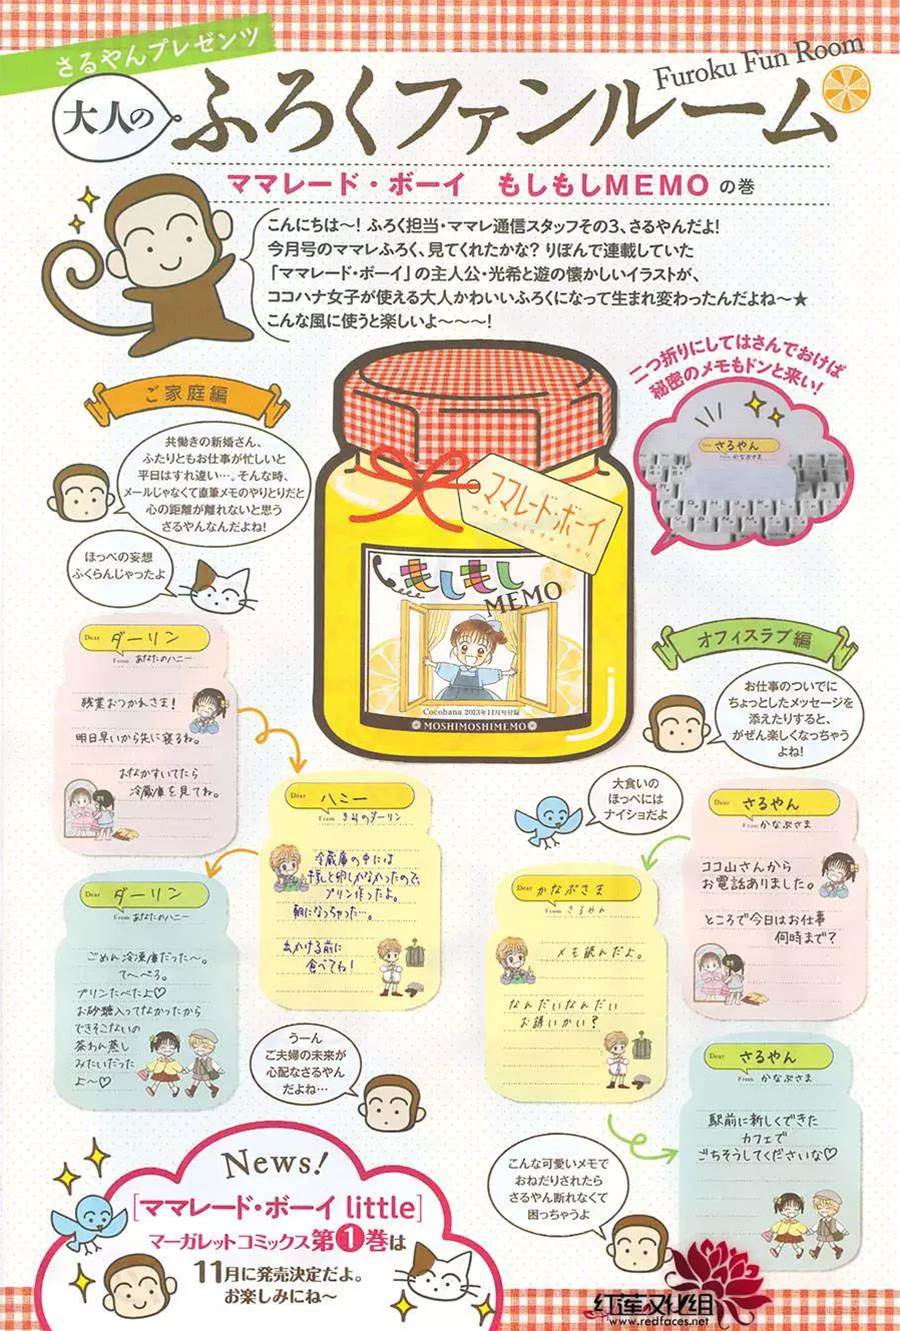 さるやんプレゼンツ
大人の
ふろくファンルーム
Furoku Fun Room
ママレード・ボーイ もしもしMEMO の巻
こんにちは〜! ふろく担当・ママレ通信スタッフその3、さるやんだよ!
今月号のママレふろく、見てくれたかな? りぼんで連載していた
「ママレード・ボーイ」の主人公・光希と遊の懐かしいイラストが、
ココハナ女子が使える大人かわいいふろくになって生まれ変わったんだよね〜★
こんな風に使うと楽しいよ〜〜〜!
二つ折りにしてはさんでおけば
秘密のメモもドンと来い!
さるやん
かなぶさま
ご家庭編
共働きの新婚さん、
ふたりともお仕事が忙しいと
平日はすれ違い…。そんな時、
メールじゃなくて直筆メモのやりとりだと
心の距離が離れないと思う
さるやんなんだよね!
ほっぺの妄想
ふくらんじゃったよ
ママレード・ボーイ
marmalade boy
もしもし
MEMO
Cocohana 2013年11月号付録
MOSHIMOSHIMEMO
Dear ダーリン
From あなたのハニー
残業おつかれさま!
明日早いから先に寝るね。
おなかすいてたら
冷蔵庫を見てね。
Dear ハニー
From きみのダーリン
冷蔵庫の中には
牛乳と卵しかなかったので、
プリン作ったよ。
朝になっちゃった…。
出かける前に
食べてね!
Dear ダーリン
From あなたのハニー
ごめん冷凍庫だった〜。
て〜へろ。
プリンたべたよ♡
お砂糖入ってなかったから
できそこないの
茶わん蒸し
みたいだった
よ〜♡
うーん
ご夫婦の未来が
心配なさるやん
だよね…
オフィスラブ編
お仕事のついでに
ちょっとしたメッセージを
添えたりすると、
がぜん楽しくなっちゃう
よね!
大食いの
ほっぺには
ナイショだよ
Dear さるやん
From かなぶさま
ココ山さんから
お電話ありました。
ところで今日はお仕事
何時まで?
Dear かなぶさま
From さるやん
メモ読んだよ。
なんだいなんだい
お誘いかい?
Dear さるやん
From かなぶさま
駅前に新しくできた
カフェで
ごちそうしてくださいな♡
こんな可愛いメモで
おねだりされたら
さるやん断れなくて
困っちゃうよ
News!
[ママレード・ボーイ little]
マーガレットコミックス第1巻は
11月に発売決定だよ。
お楽しみにね〜
红莲汉化组
www.redfaces.net